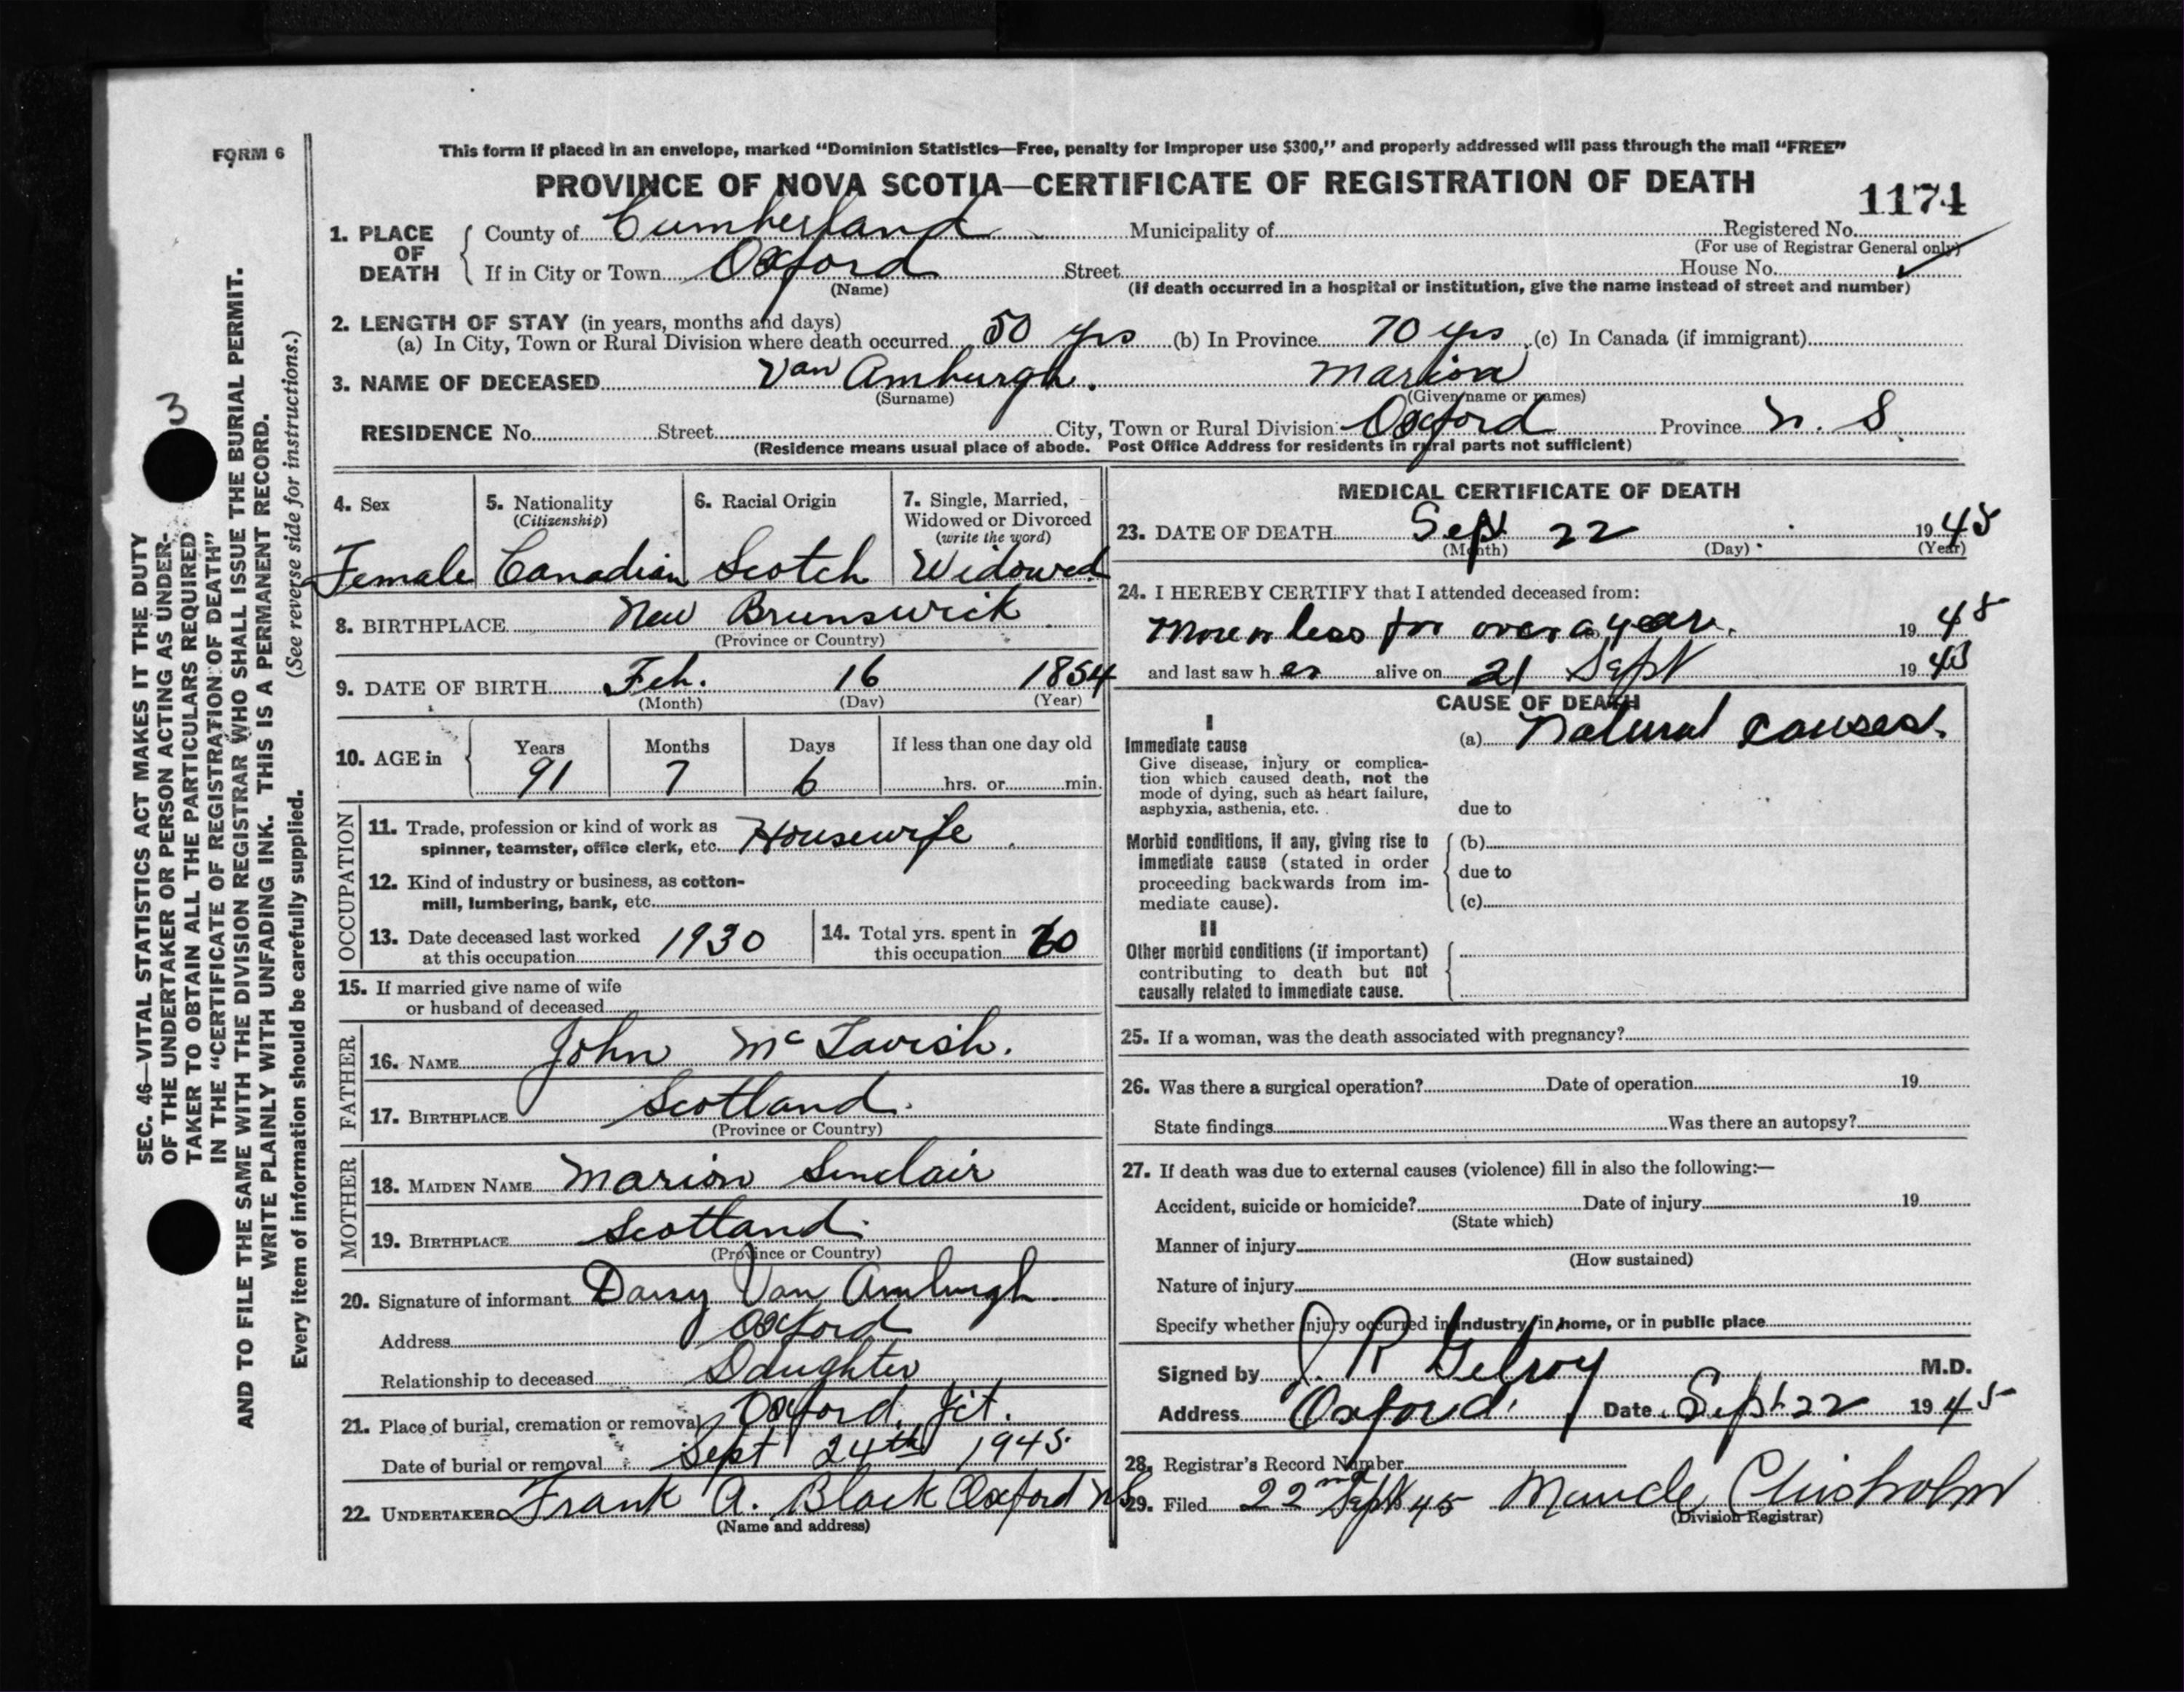 FORM 6
This form if placed in an envelope, marked "Dominion Statistics—Free, penalty for improper use $300," and properly addressed will pass through the mail "FREE"
PROVINCE OF NOVA SCOTIA—CERTIFICATE OF REGISTRATION OF DEATH
1174
1. PLACE OF DEATH { County of Cumberland Municipality of Registered No.
(For use of Registrar General only)
If in City or Town Oxford Street House No.
(Name) (If death occurred in a hospital or institution, give the name instead of street and number)
2. LENGTH OF STAY (in years, months and days)
(a) In City, Town or Rural Division where death occurred 50 yrs (b) In Province 70 yrs (c) In Canada (if immigrant)
3. NAME OF DECEASED Van Amburgh. Marion
(Surname) (Given name or names)
RESIDENCE No. Street City, Town or Rural Division Oxford Province N. S.
(Residence means usual place of abode. Post Office Address for residents in rural parts not sufficient)
4. Sex
Female
5. Nationality
(Citizenship)
Canadian
6. Racial Origin
Scotch
7. Single, Married,
Widowed or Divorced
(write the word)
Widowed
8. BIRTHPLACE New Brunswick
(Province or Country)
9. DATE OF BIRTH Feb. 16 1854
(Month) (Day) (Year)
10. AGE in { Years Months Days If less than one day old
91 7 6 hrs. or min.
OCCUPATION
11. Trade, profession or kind of work as
spinner, teamster, office clerk, etc. Housewife
12. Kind of industry or business, as cotton-
mill, lumbering, bank, etc.
13. Date deceased last worked
at this occupation 1930
14. Total yrs. spent in
this occupation 60
15. If married give name of wife
or husband of deceased
FATHER
16. NAME John McTavish.
17. BIRTHPLACE Scotland.
(Province or Country)
MOTHER
18. MAIDEN NAME Marion Sinclair
19. BIRTHPLACE Scotland.
(Province or Country)
20. Signature of informant Daisy Van Amburgh
Address Oxford
Relationship to deceased Daughter
21. Place of burial, cremation or removal Oxford, Jct.
Date of burial or removal Sept 24th 1945
22. UNDERTAKER Frank A. Black Oxford NS
(Name and address)
MEDICAL CERTIFICATE OF DEATH
23. DATE OF DEATH Sept 22 1945
(Month) (Day) (Year)
24. I HEREBY CERTIFY that I attended deceased from:
More or less for over a year. 1945
and last saw her alive on 21 Sept 19
CAUSE OF DEATH
I
Immediate cause
Give disease, injury or complica-
tion which caused death, not the
mode of dying, such as heart failure,
asphyxia, asthenia, etc.
(a) Natural causes.
due to
Morbid conditions, if any, giving rise to
immediate cause (stated in order
proceeding backwards from im-
mediate cause).
(b)
due to
(c)
II
Other morbid conditions (if important)
contributing to death but not
causally related to immediate cause.
25. If a woman, was the death associated with pregnancy?
26. Was there a surgical operation? Date of operation 19
State findings Was there an autopsy?
27. If death was due to external causes (violence) fill in also the following:—
Accident, suicide or homicide? Date of injury 19
(State which)
Manner of injury
(How sustained)
Nature of injury
Specify whether injury occurred in industry, in home, or in public place
Signed by J. R. Gilroy M.D.
Address Oxford. Date Sept 22 1945
28. Registrar's Record Number
29. Filed 22nd Sept 45 Maude Chisholm
(Division Registrar)
3
SEC. 46—VITAL STATISTICS ACT MAKES IT THE DUTY
OF THE UNDERTAKER OR PERSON ACTING AS UNDER-
TAKER TO OBTAIN ALL THE PARTICULARS REQUIRED
IN THE "CERTIFICATE OF REGISTRATION OF DEATH"
AND TO FILE THE SAME WITH THE DIVISION REGISTRAR WHO SHALL ISSUE THE BURIAL PERMIT.
WRITE PLAINLY WITH UNFADING INK. THIS IS A PERMANENT RECORD.
Every item of information should be carefully supplied. (See reverse side for instructions.)